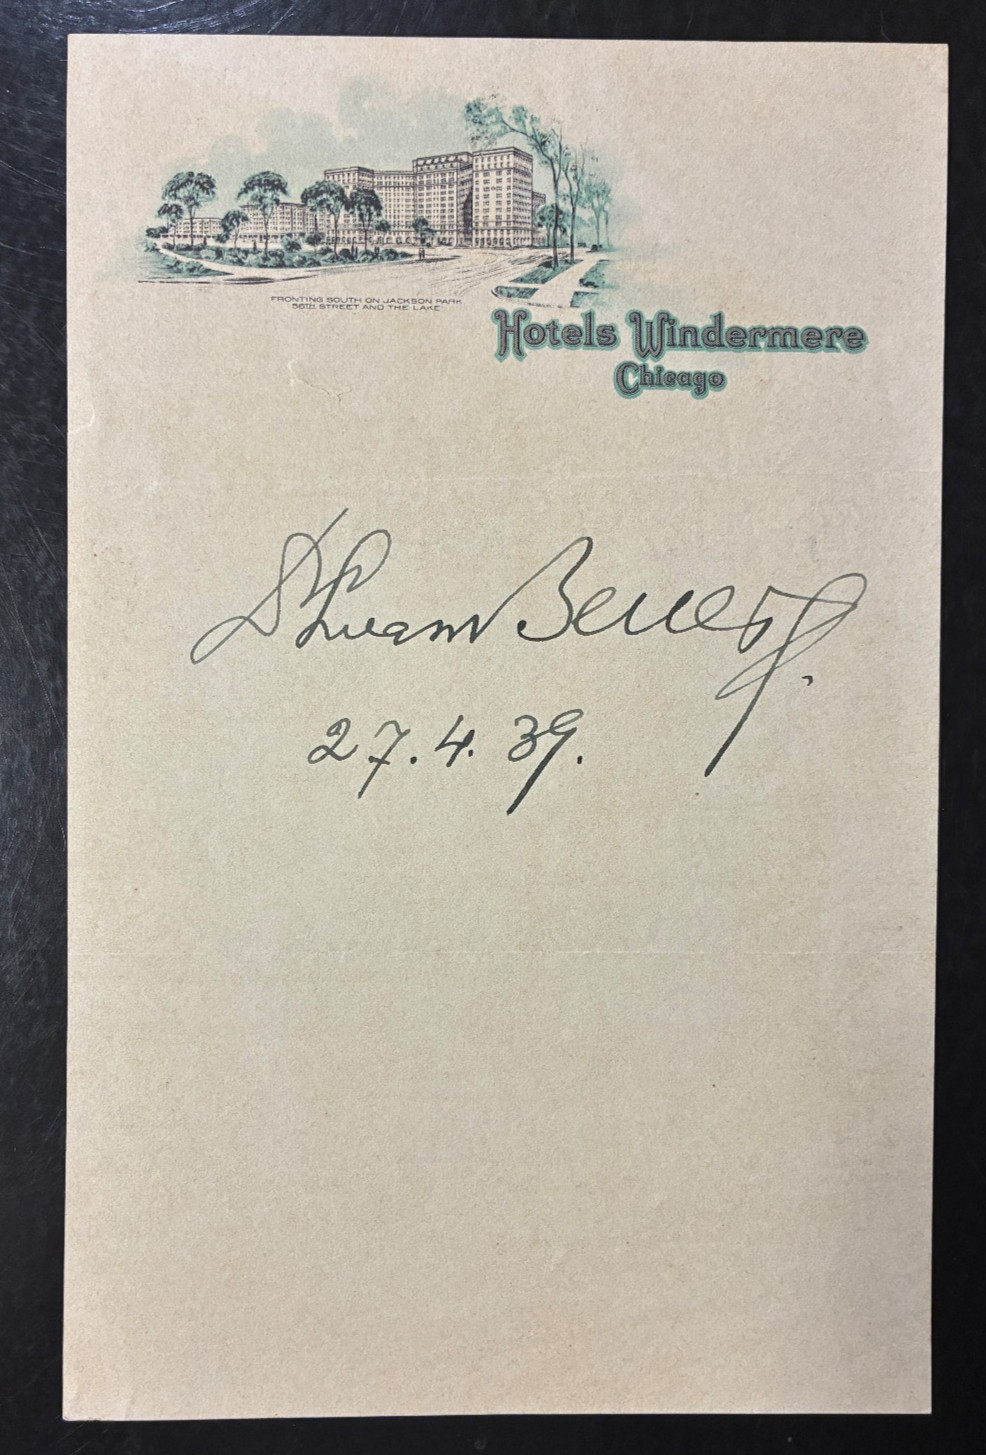 FRONTING SOUTH ON JACKSON PARK
56TH STREET AND THE LAKE
Hotels Windermere
Chicago
27.4.39.